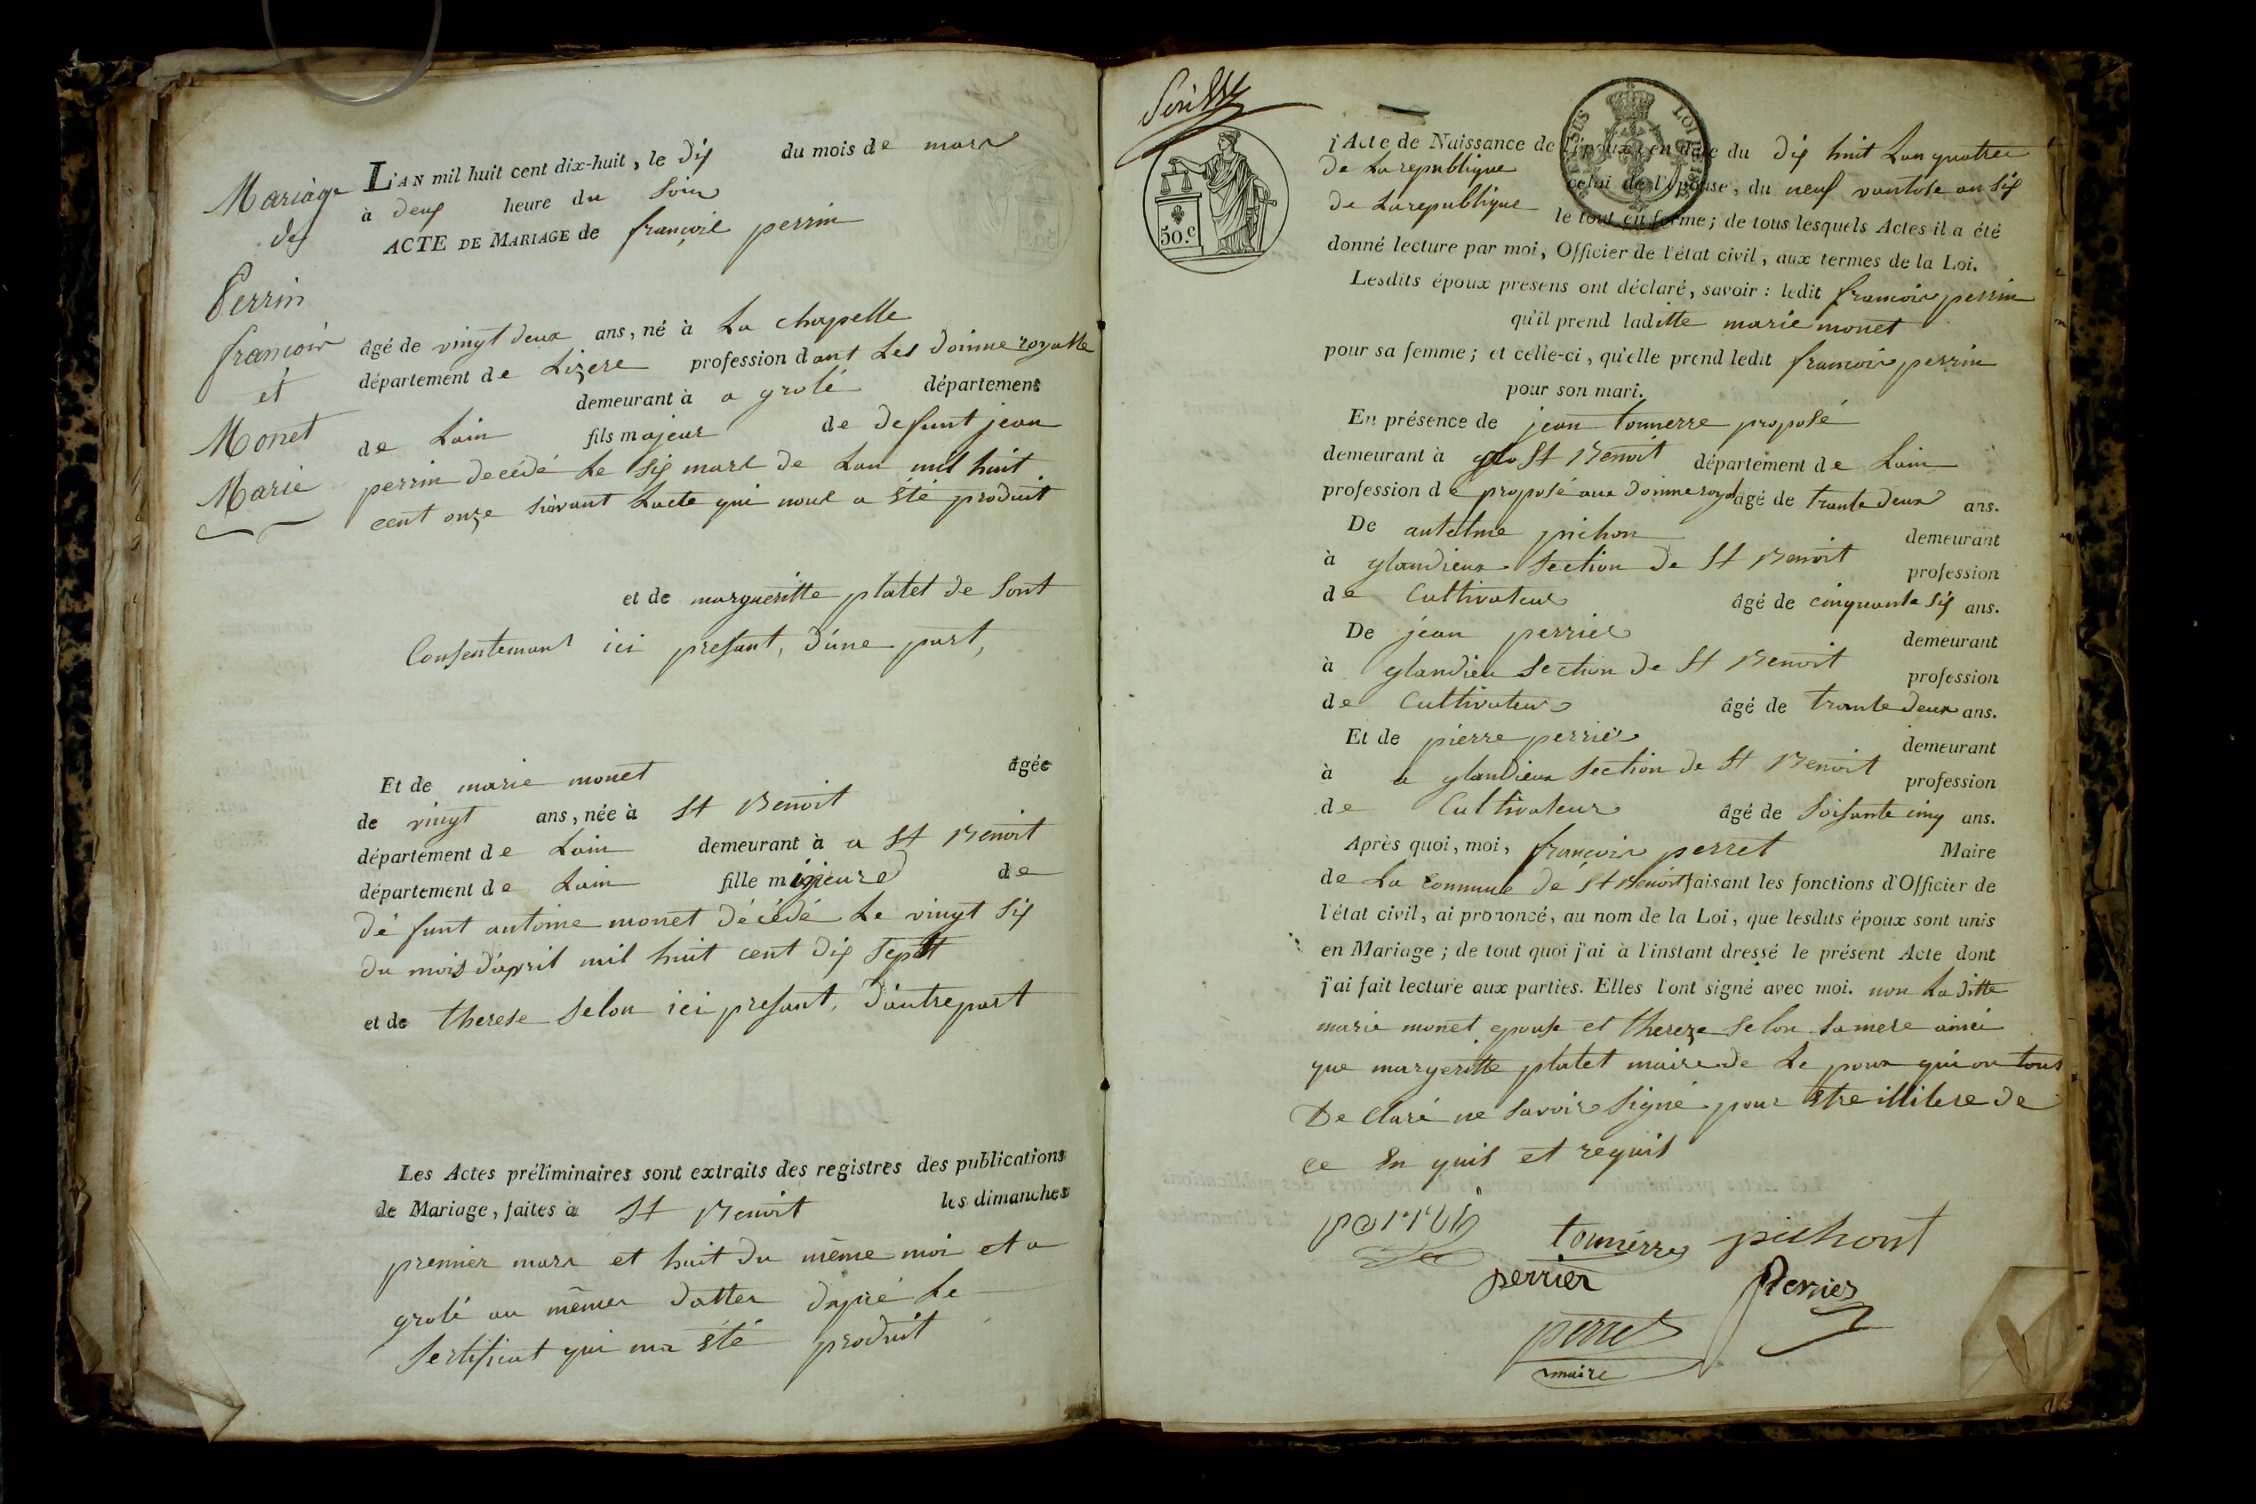 Mariage
des
Perrin
françois
et
Monet
Marie
L'AN mil huit cent dix-huit, le dix du mois de mars
à deux heure du Soir
ACTE DE MARIAGE de françois perrin
âgé de vingt deux ans, né à La chapelle
département de Lizere profession dant Les doinne royalle
demeurant à a grolé département
de Lain fils majeur de defunt jean
perrin decédé Le Six mars de Lan mil huit
cent onze Suivant Lacte qui nous a été produit
et de margueritte platet de Sont
Consentemant ici presant, d'une part,
Et de marie monet âgée
de vingt ans, née à St Benoit
département de Lain demeurant à a St Benoit
département de Lain fille mineure de
dé funt antoine monet décédé Le vingt Six
du mois d'apvril mil huit cent dix Sept
et de therese Selon ici presant, d'autre part
Les Actes préliminaires sont extraits des registres des publications
de Mariage, faites à St Benoit les dimanches
premier mars et huit du même moi et a
grolé au mêmes dattes dapré Le
Sertificat qui ma été produit
50.c
LOI
j Acte de Naissance de l'époux, en date du dix huit Lan quatre
de La republique celui de l'épouse, du neuf vantose an Six
de La republique le tout en forme; de tous lesquels Actes il a été
donné lecture par moi, Officier de l'état civil, aux termes de la Loi.
Lesdits époux présens ont déclaré, savoir: ledit francois perrin
qu'il prend laditte marie monet
pour sa femme; et celle-ci, qu'elle prend ledit francois perrin
pour son mari.
En présence de jean tonnerre proposé
demeurant à St Benoit département de Lain
profession de proposé aux doinne royal âgé de trante deux ans.
De antelme pichon demeurant
à glandieux Section de St Benoit profession
de Cultivateur âgé de cinquante Six ans.
De jean perrier demeurant
à glandieu Section de St Benoit profession
de Cultivateur âgé de trante deux ans.
Et de pierre perrier demeurant
à a glandieux Section de St Benoit profession
de Cultivateur âgé de Soisante cinq ans.
Après quoi, moi, françois perret Maire
de La commune de St Benoit faisant les fonctions d'Officier de
l'état civil, ai prononcé, au nom de la Loi, que lesdits époux sont unis
en Mariage; de tout quoi j'ai à l'instant dressé le présent Acte dont
j'ai fait lecture aux parties. Elles l'ont signé avec moi. non La ditte
marie monet epouse et thereze Selon Sa mere ainci
que margeritte platet maire de Le poux qui on tous
De Claré ne Savoir Signé pour être illitere de
ce En quis et requis
perrin tonnerre pichont
perrier Perrier
perret
maire